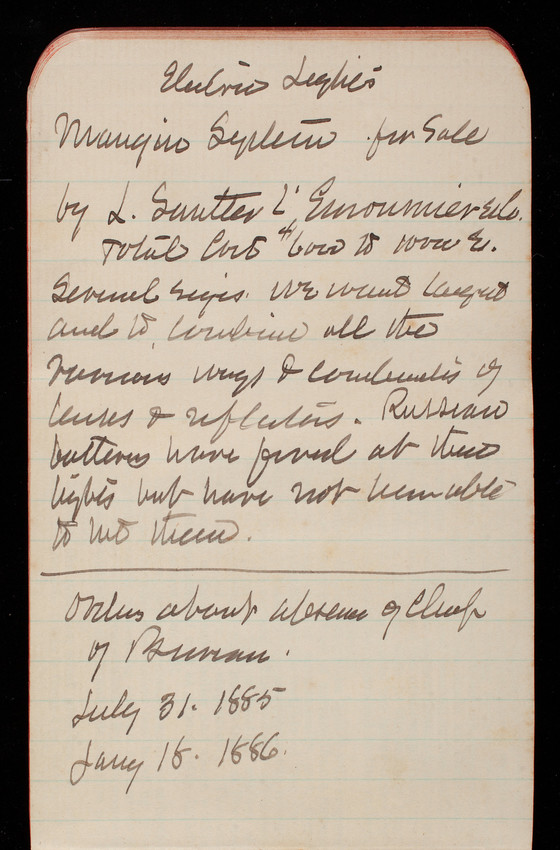 Electric Lights
Mangin System for Sale
by L. Sautter L' & Co.
Total Cost to
Several sizes. We want largest
and to combine all the
various ways & of
lenses & reflectors. Russian
batteries have fired at these
lights but have not been able
to hit them.
Orders about absence of Chief
of Bureau.
July 31. 1885
Jany 18. 1886.